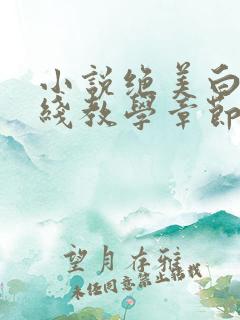 小說絕美白
綫教學章節
望月存雅
未經同意禁止轉載